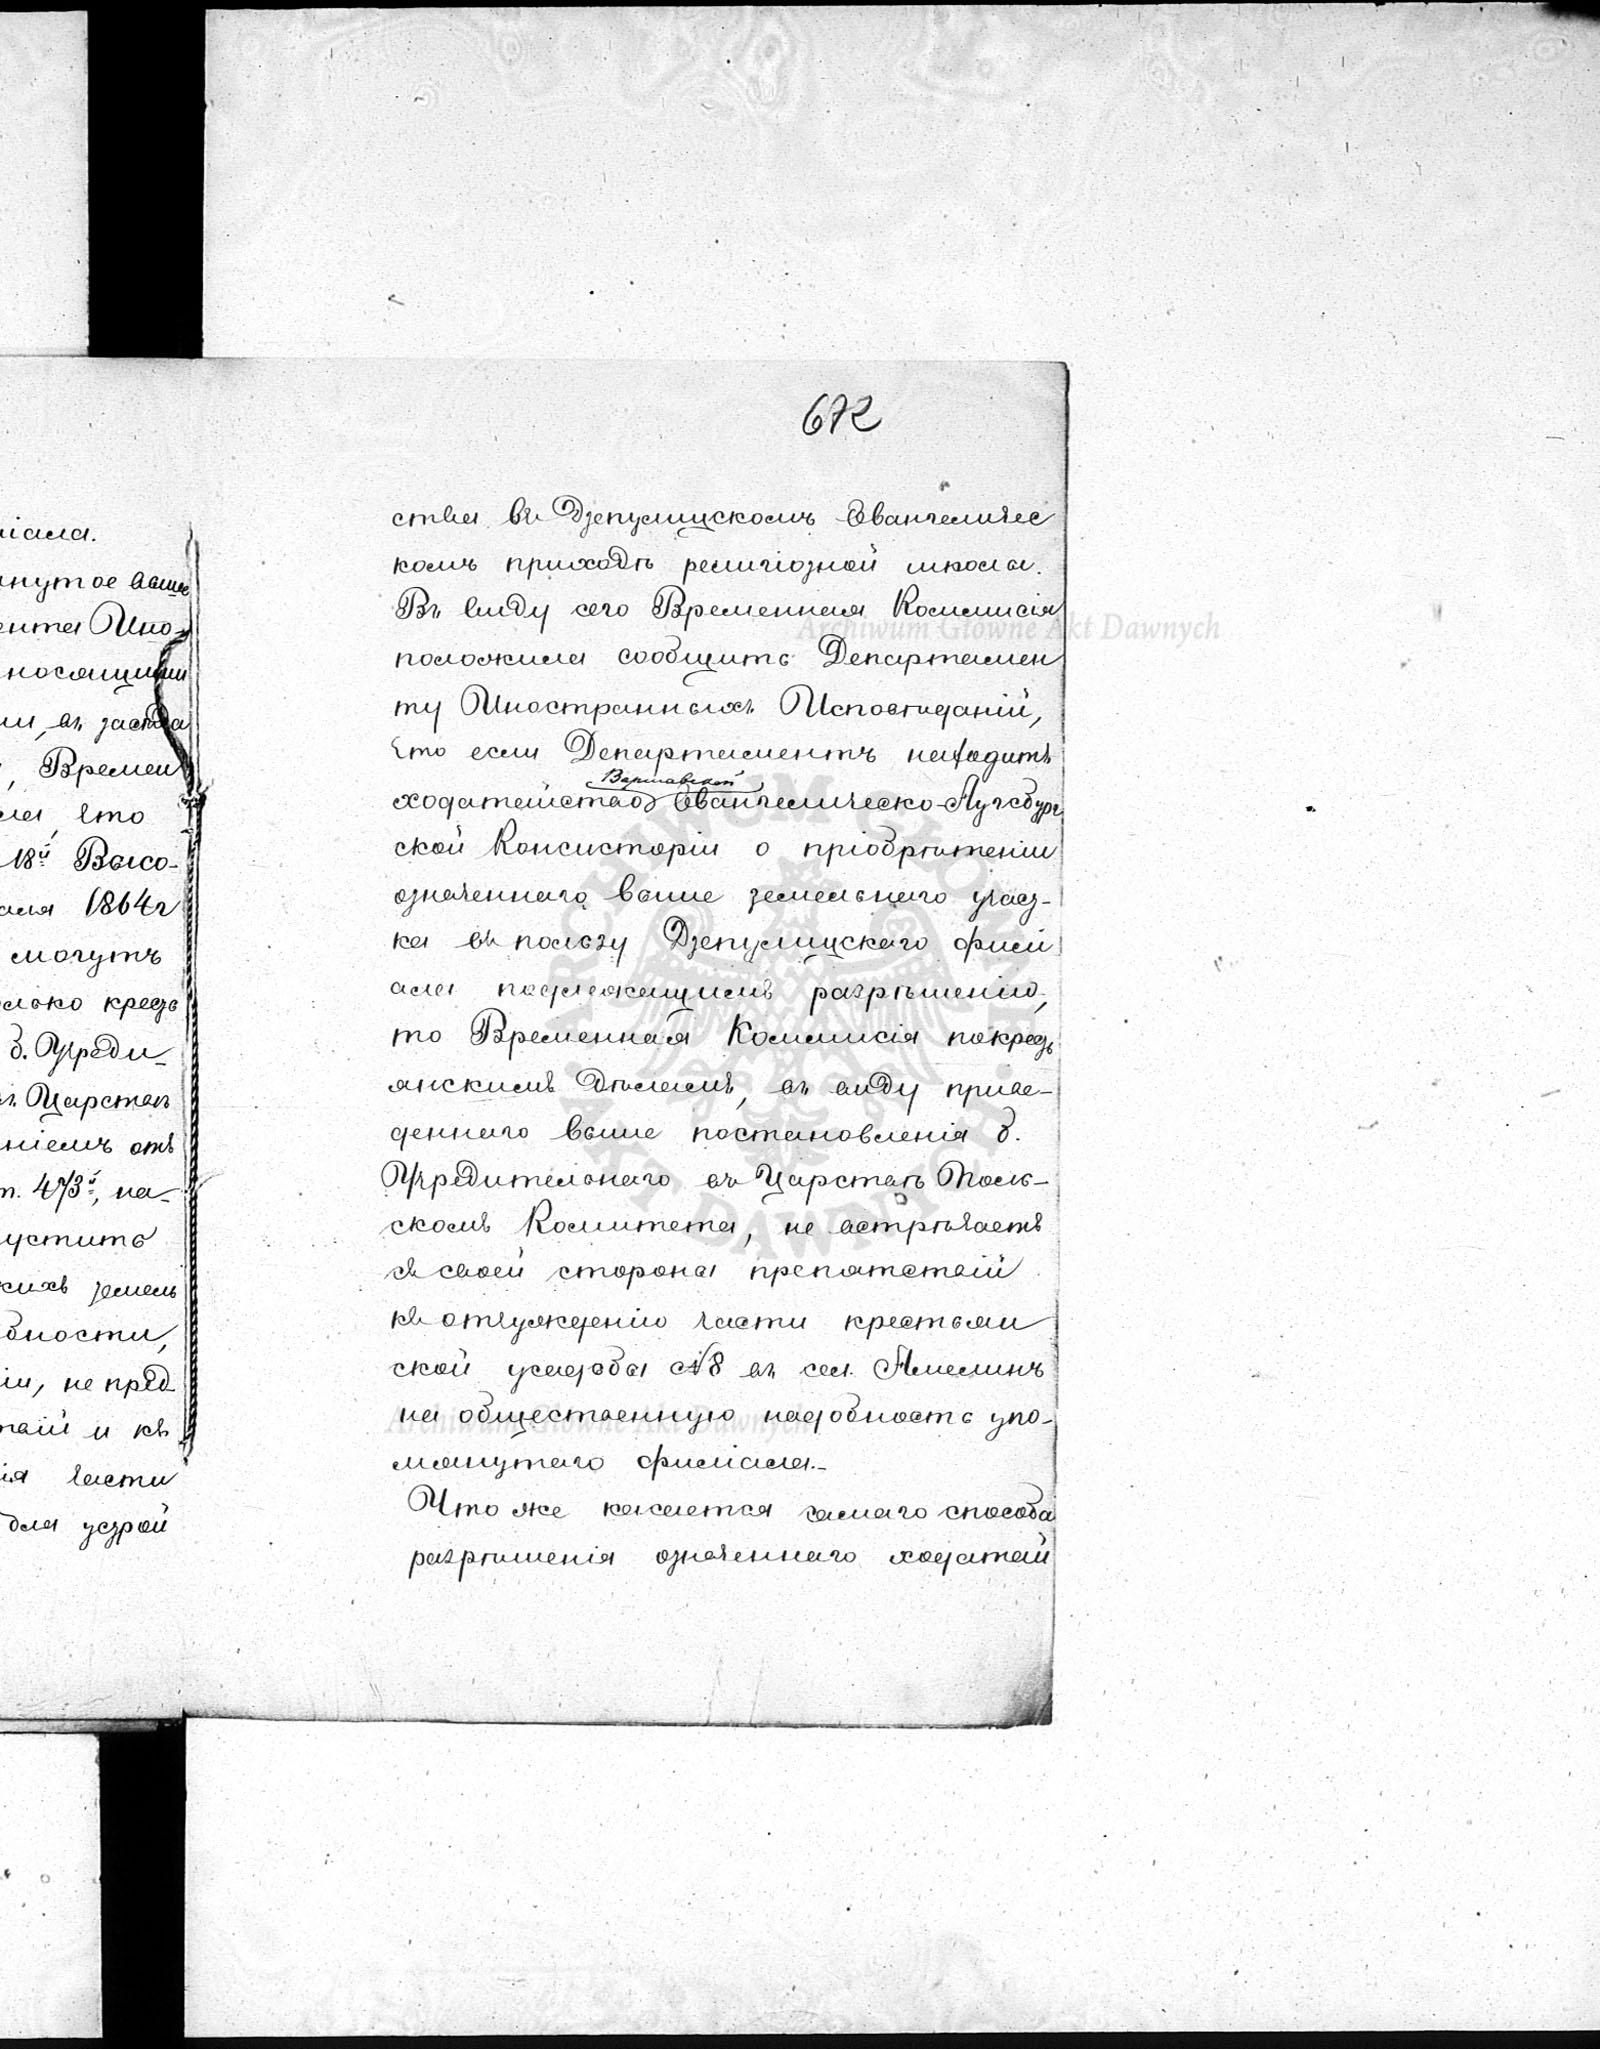 672
ства въ Дзепулцискомъ Евангеличес
комъ приходѣ религіозной школы.
Въ виду сего Временная Коммисія
положила сообщить Департамен
ту Иностранныхъ Исповѣданій,
что если Департаментъ находитъ
Варшавской
ходатайство Евангелическо-Аугсбург
ской Консисторіи о пріобрѣтеніи
означеннаго выше земельнаго учас-
ка въ пользу Дзепулцискаго фили
ала подлежащимъ разрѣшенію,
то Временная Коммисія по крест
янскимъ дѣламъ, въ виду приве-
деннаго выше постановленія б.
Учредительнаго въ Царствѣ Поль-
скомъ Комитета, не встрѣчаетъ
съ своей стороны препятствій
къ отчужденію части крестьян
ской усадьбы №8 въ сел. Амелинъ
на общественную надобность упо-
мянутаго филіала.-
Что же касается самаго способа
разрѣшенія означеннаго ходатай
іала.
янутое выше
ента Ино-
носящими
въ засѣда
, Времен
что
18й Высо-
1864г
могутъ
олько крест
б. Учреди-
въ Царствѣ
ніемъ отъ
ст. 473й, на-
устить
кихъ земель
обности,
іи, не пред
твій и къ
ія части
для устрой
Archiwum Główne Akt Dawnych
Archiwum Główne Akt Dawnych
ARCHIWUM GŁÓWNE AKT DAWNYCH